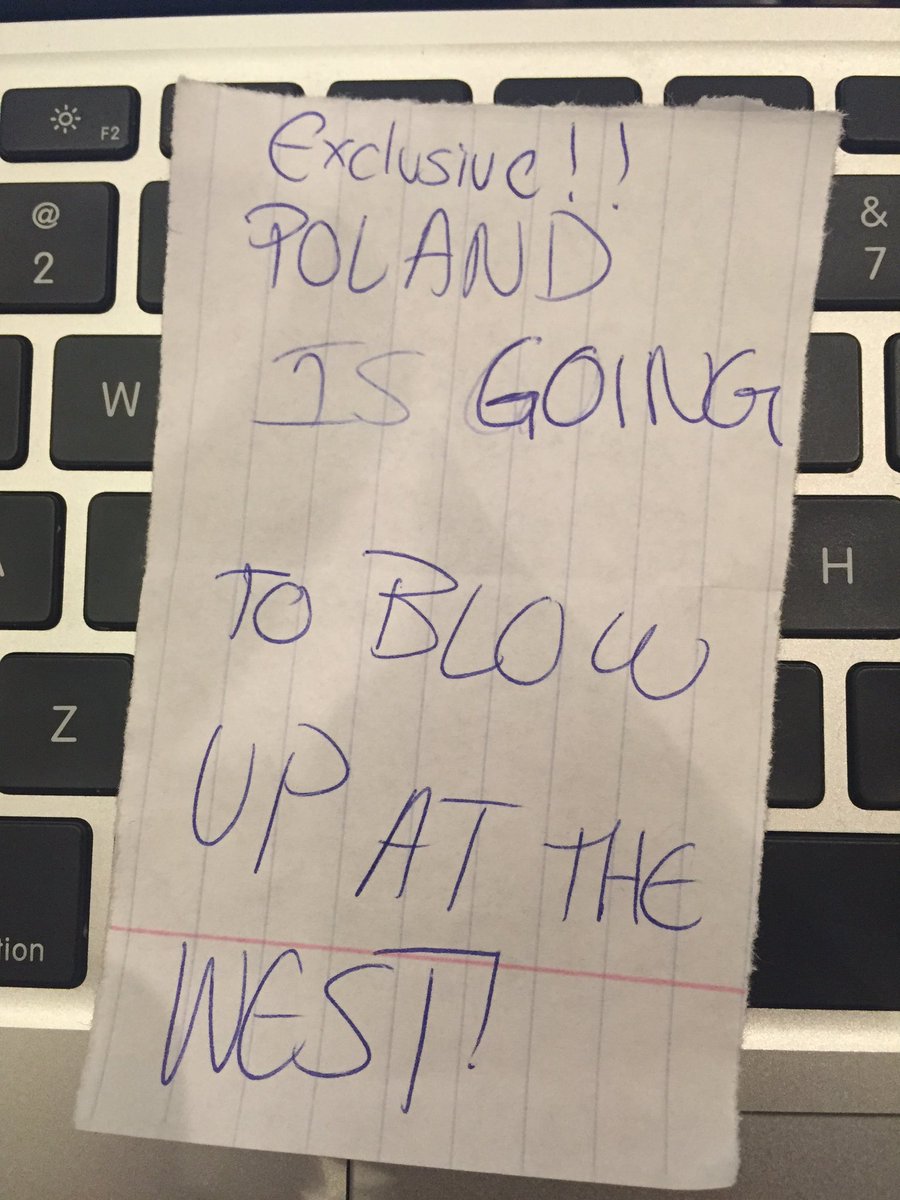 Exclusive!!
POLAND
IS GOING
TO BLOW
UP AT THE
WEST!
F2
@
2
&
7
W
H
Z
tion